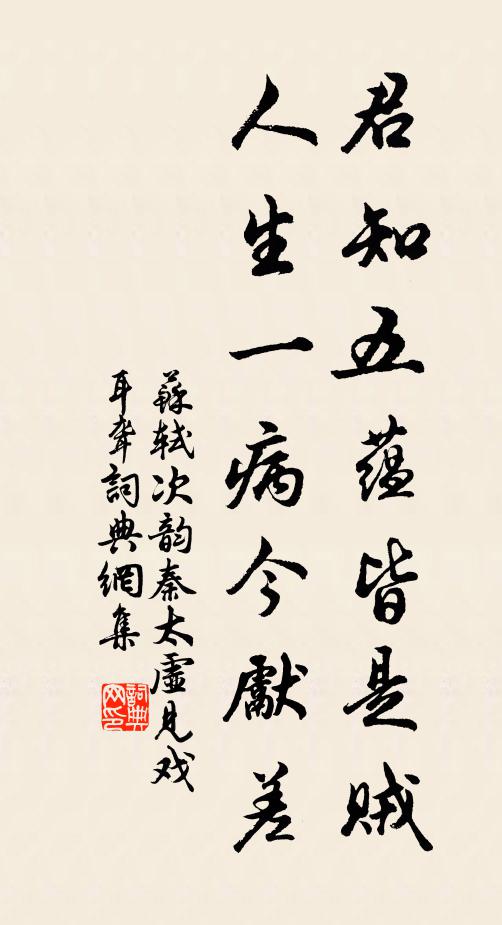 君知五蕴皆是贼
人生一病今獻差
蘇轼次韵秦太虛見戏
耳聋詞典網集
詞典
网印